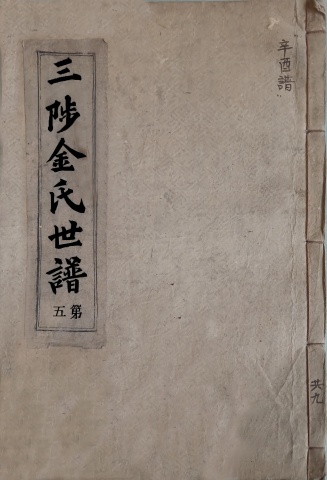 辛酉譜
三陟金氏世譜
第五
共九